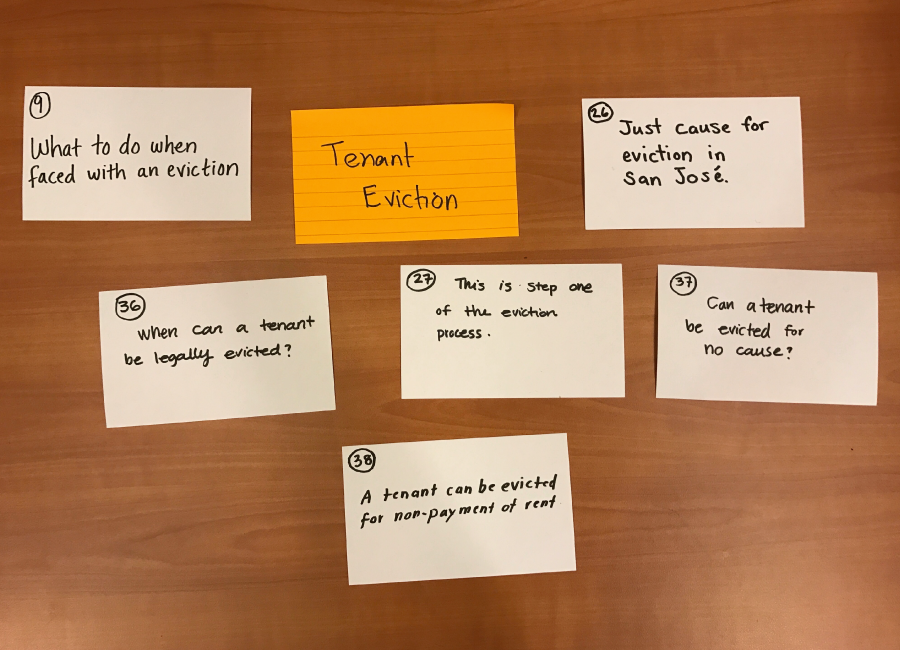 9
What to do when
faced with an eviction
Tenant
Eviction
26
Just cause for
eviction in
San José.
36
when can a tenant
be legally evicted?
27
This is step one
of the eviction
process.
37
Can a tenant
be evicted for
no cause?
38
A tenant can be evicted
for non-payment of rent